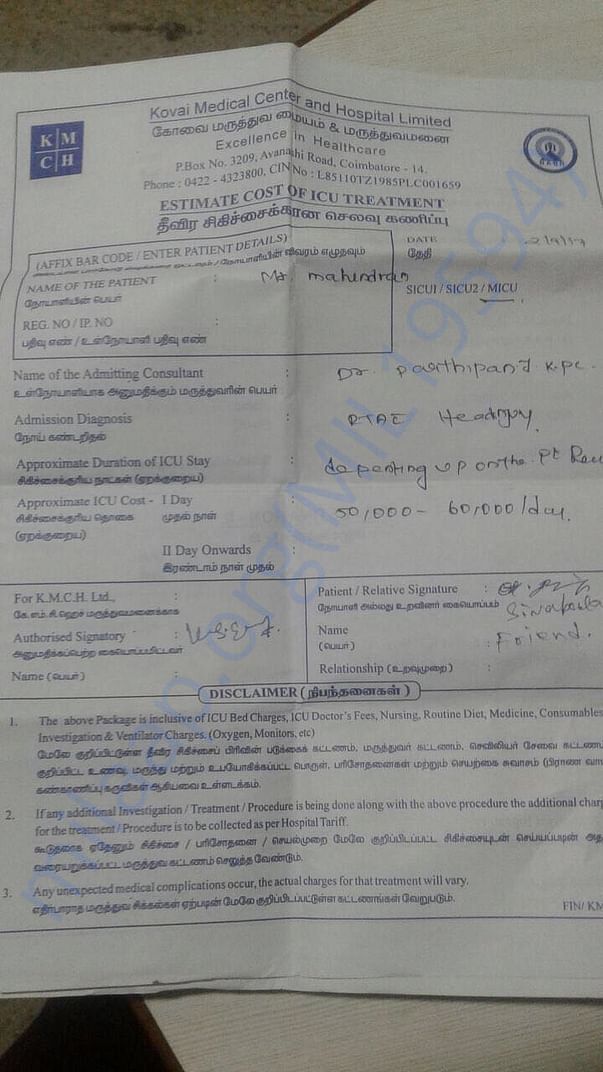 K M C H
Kovai Medical Center and Hospital Limited
கோவை மருத்துவ மையம் & மருத்துவமனை
Excellence in Healthcare
P.Box No. 3209, Avanashi Road, Coimbatore - 14.
Phone : 0422 - 4323800, CIN No : L85110TZ1985PLC001659
ESTIMATE COST OF ICU TREATMENT
தீவிர சிகிச்சைக்கான செலவு கணிப்பு
(AFFIX BAR CODE / ENTER PATIENT DETAILS)
DATE
தேதி
NAME OF THE PATIENT : Mr. Mahendran
நோயாளியின் பெயர்
SICU1 / SICU2 / MICU
REG. NO / IP. NO :
பதிவு எண் / உள்நோயாளி பதிவு எண்
Name of the Admitting Consultant : Dr.
உள்நோயாளியாக அனுமதிக்கும் மருத்துவரின் பெயர்
Admission Diagnosis :
நோய் கண்டறிதல்
Approximate Duration of ICU Stay : depenting up on the Pt
சிகிச்சைக்குரிய நாட்கள் (ஏறக்குறைய)
Approximate ICU Cost - I Day : 50,000 - 60,000 /day.
சிகிச்சைக்குரிய தொகை முதல் நாள்
(ஏறக்குறைய)
II Day Onwards :
இரண்டாம் நாள் முதல்
For K.M.C.H. Ltd., :
கே.எம்.சி.ஹெச் மருத்துவமனைக்காக
Authorised Signatory :
அனுமதிக்கப்பெற்ற கையொப்பமிட்டவர்
Name (பெயர்) :
Patient / Relative Signature :
நோயாளி அல்லது உறவினர் கையொப்பம்
Name
(பெயர்) : Friend.
Relationship (உறவுமுறை) :
DISCLAIMER (நிபந்தனைகள்)
1. The above Package is inclusive of ICU Bed Charges, ICU Doctor's Fees, Nursing, Routine Diet, Medicine, Consumables
Investigation & Ventilator Charges. (Oxygen, Monitors, etc)
மேலே குறிப்பிட்டுள்ள தீவிர சிகிச்சைப் பிரிவின் படுக்கைக் கட்டணம், மருத்துவர் கட்டணம், செவிலியர் சேவை கட்டணம்
குறிப்பிட்ட உணவு, மருந்து மற்றும் உபயோகிக்கப்பட்ட பொருள், பரிசோதனைகள் மற்றும் செயற்கை சுவாசம் (பிராண வா
கண்காணிப்பு கருவிகள் ஆகியவை உள்ளடக்கம்.
2. If any additional Investigation / Treatment / Procedure is being done along with the above procedure the additional char
for the treatment / Procedure is to be collected as per Hospital Tariff.
கூடுதலாக ஏதேனும் சிகிச்சை / பரிசோதனை / செயல்முறை மேலே குறிப்பிடப்பட்ட சிகிச்சையுடன் செய்யப்படின் அத
வரையறுக்கப்பட்ட மருத்துவ கட்டணம் செலுத்த வேண்டும்.
3. Any unexpected medical complications occur, the actual charges for that treatment will vary.
எதிர்பாராத மருத்துவ சிக்கல்கள் ஏற்படின் மேலே குறிப்பிடப்பட்டுள்ள கட்டணங்கள் வேறுபடும்.
FIN/ KM